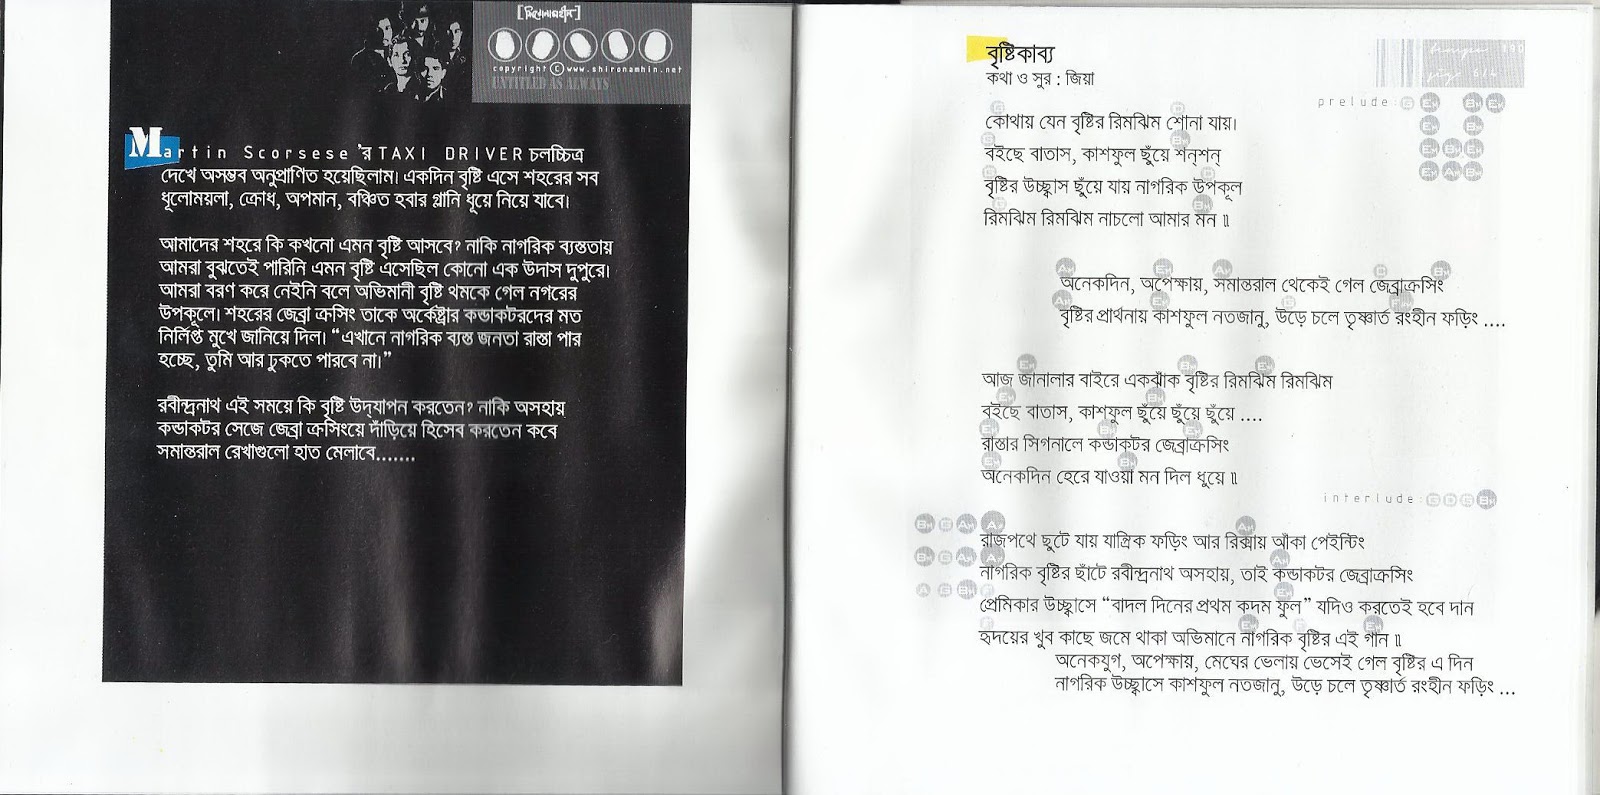 [শিরোনামহীন]
copyright c www.shironamhin.net
UNTITLED AS ALWAYS
Martin Scorsese 'র TAXI DRIVER চলচ্চিত্র
দেখে অসম্ভব অনুপ্রাণিত হয়েছিলাম। একদিন বৃষ্টি এসে শহরের সব
ধূলোময়লা, ক্রোধ, অপমান, বঞ্চিত হবার গ্লানি ধুয়ে নিয়ে যাবে।
আমাদের শহরে কি কখনো এমন বৃষ্টি আসবে? নাকি নাগরিক ব্যস্ততায়
আমরা বুঝতেই পারিনি এমন বৃষ্টি এসেছিল কোনো এক উদাস দুপুরে।
আমরা বরণ করে নেইনি বলে অভিমানী বৃষ্টি থমকে গেল নগরের
উপকূলে। শহরের জেব্রা ক্রসিং তাকে অর্কেষ্ট্রার কন্ডাকটরদের মত
নির্লিপ্ত মুখে জানিয়ে দিল। “এখানে নাগরিক ব্যস্ত জনতা রাস্তা পার
হচ্ছে, তুমি আর ঢুকতে পারবে না।”
রবীন্দ্রনাথ এই সময়ে কি বৃষ্টি উদ্‌যাপন করতেন? নাকি অসহায়
কন্ডাকটর সেজে জেব্রা ক্রসিংয়ে দাঁড়িয়ে হিসেব করতেন কবে
সমান্তরাল রেখাগুলো হাত মেলাবে.......
বৃষ্টিকাব্য
কথা ও সুর : জিয়া
prelude: G EM BM EM
EM BM
EM BM EM
EM AM BM
কোথায় যেন বৃষ্টির রিমঝিম শোনা যায়।
বইছে বাতাস, কাশফুল ছুঁয়ে শন্‌শন্
বৃষ্টির উচ্ছ্বাস ছুঁয়ে যায় নাগরিক উপকূল
রিমঝিম রিমঝিম নাচলো আমার মন ॥
অনেকদিন, অপেক্ষায়, সমান্তরাল থেকেই গেল জেব্রাক্রসিং
বৃষ্টির প্রার্থনায় কাশফুল নতজানু, উড়ে চলে তৃষ্ণার্ত রংহীন ফড়িং ....
আজ জানালার বাইরে একঝাঁক বৃষ্টির রিমঝিম রিমঝিম
বইছে বাতাস, কাশফুল ছুঁয়ে ছুঁয়ে ছুঁয়ে ....
রাস্তার সিগনালে কন্ডাকটর জেব্রাক্রসিং
অনেকদিন হেরে যাওয়া মন দিল ধুয়ে ॥
interlude: G D G BM
BM G AM
রাজপথে ছুটে যায় যান্ত্রিক ফড়িং আর রিক্সায় আঁকা পেইন্টিং
BM G AM
নাগরিক বৃষ্টির ছাঁটে রবীন্দ্রনাথ অসহায়, তাই কন্ডাকটর জেব্রাক্রসিং
A G BM
প্রেমিকার উচ্ছ্বাসে “বাদল দিনের প্রথম কদম ফুল” যদিও করতেই হবে দান
হৃদয়ের খুব কাছে জমে থাকা অভিমানে নাগরিক বৃষ্টির এই গান ॥
অনেকযুগ, অপেক্ষায়, মেঘের ভেলায় ভেসেই গেল বৃষ্টির এ দিন
নাগরিক উচ্ছ্বাসে কাশফুল নতজানু, উড়ে চলে তৃষ্ণার্ত রংহীন ফড়িং ...